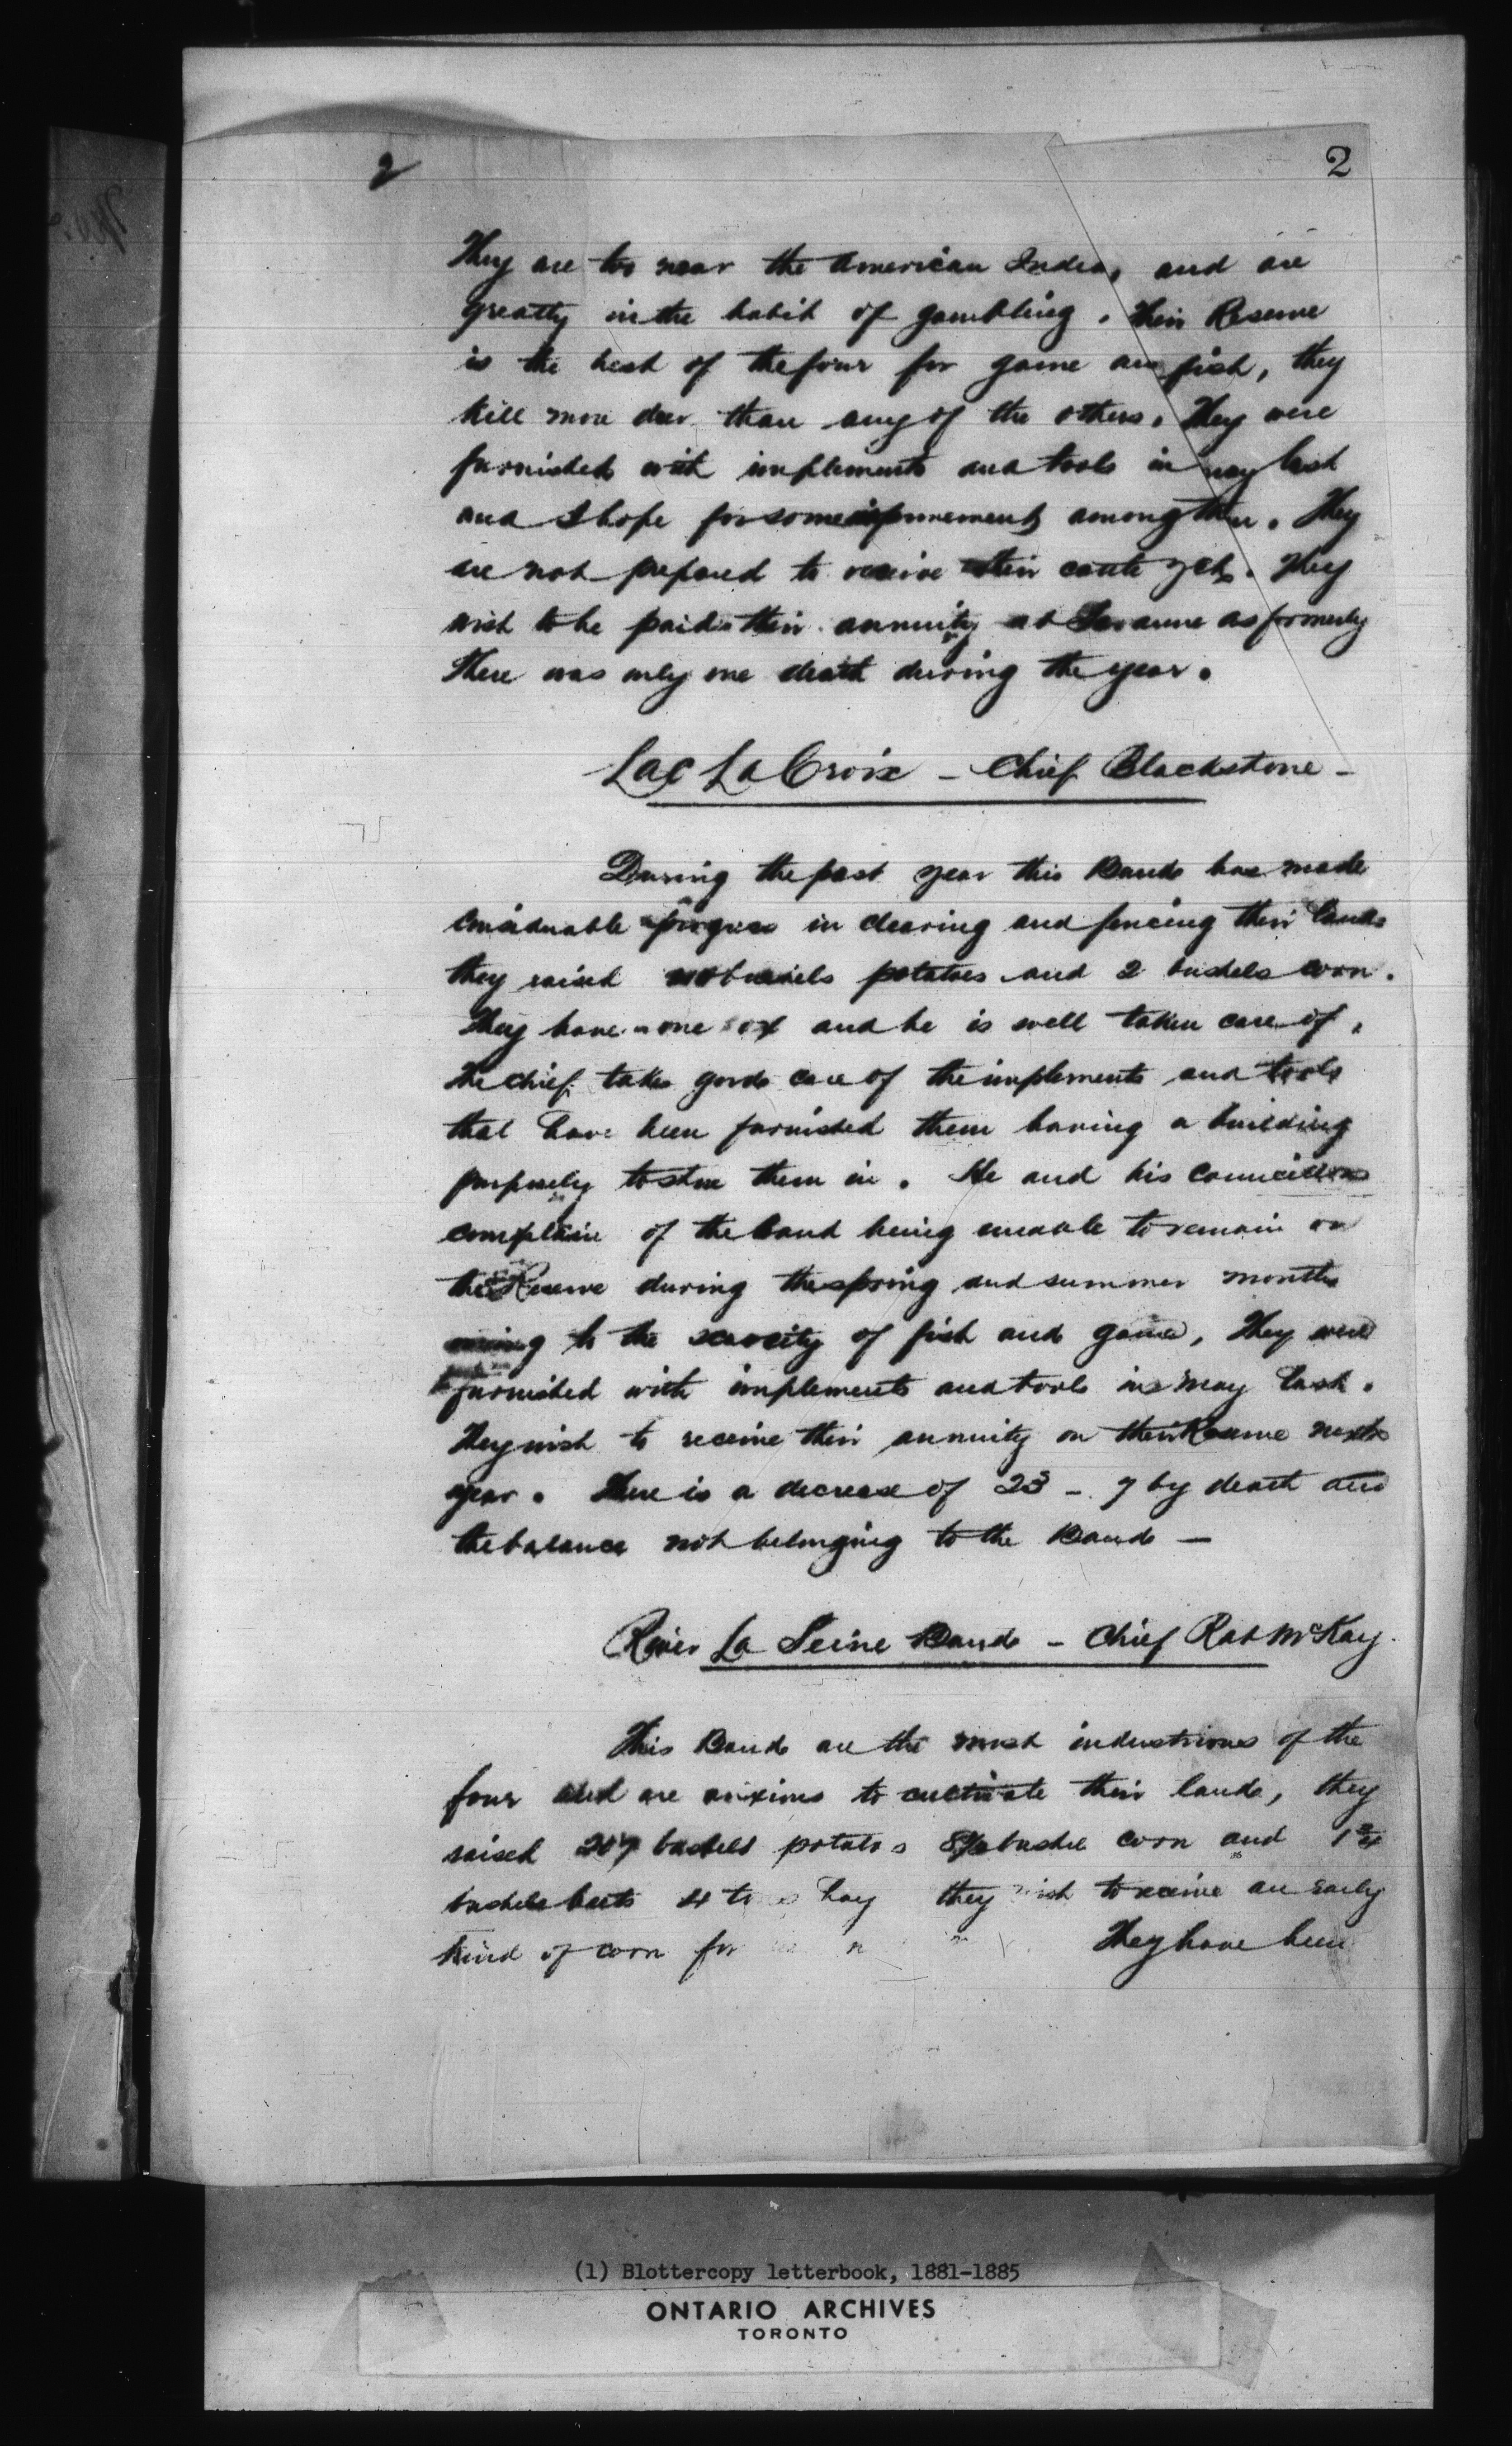 2 2
They are too near the American Indians and are
greatly in the habit of gambling. Their Reserve
is the best of the four for game and fish, they
kill more deer than any of the others. They were
furnished with implements and tools in May last
and I hope for some improvement among them. They
are not prepared to receive their cattle yet. They
wish to be paid their annuity at Savanne as formerly
There was only one death during the year.
Lac La Croix - Chief Blackstone -
During the past year this Band has made
considerable progress in clearing and fencing their lands
they raised bushels potatoes and 2 bushels corn.
They have one ox and he is well taken care of,
The Chief takes good care of the implements and tools
that have been furnished them having a building
purposely to store them in. He and his councillors
complain of the band being unable to remain on
the Reserve during the spring and summer months
owing to the scarcity of fish and game, They were
furnished with implements and tools in May last.
They wish to receive their annuity on their Reserve next
year. There is a decrease of 23 - 7 by death and
the balance not belonging to the Band —
River La Seine Band - Chief Rat McKay.
This Band are the most industrious of the
four and are anxious to cultivate their lands, they
raised 207 bushels potatoes bushel corn and 1 3/4
bushels beets 4 tons hay they wish to receive an early
kind of corn for They have been
(1) Blottercopy letterbook, 1881-1885
ONTARIO ARCHIVES
TORONTO